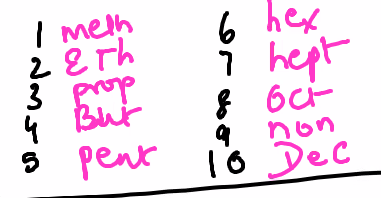 1 meth
2 ETh
3 prop
4 But
5 pent
6 hex
7 hept
8 Oct
9 non
10 DeC